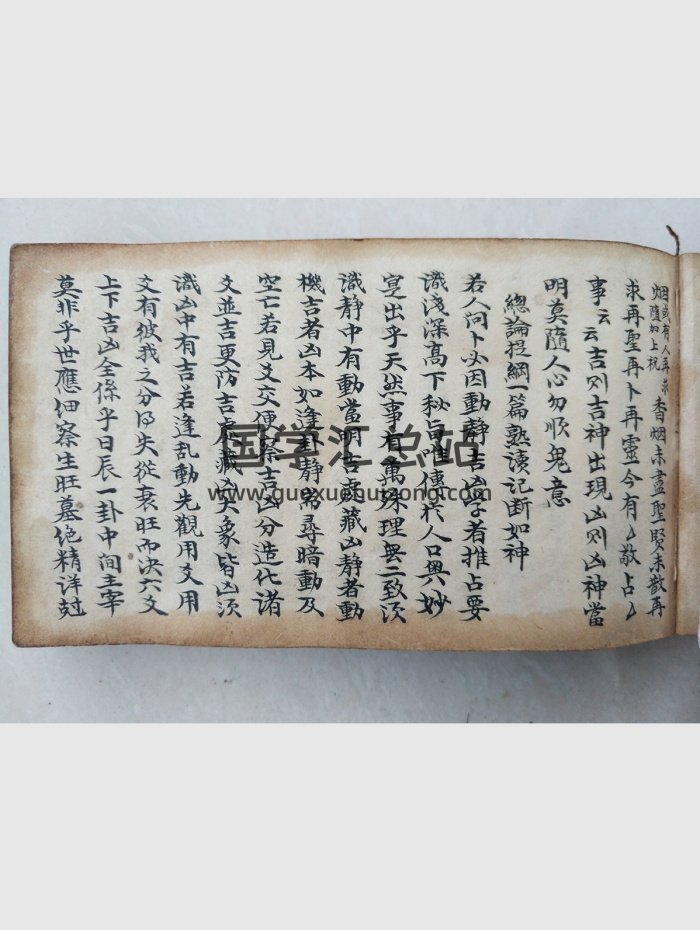 因或有人再求
烟隨如上祝
香烟未盡聖賢未散再
求再聖再卜再靈今有厶敬占厶
事云云吉则吉神出現凶则凶神當
明莫隨人心勿順鬼意
總論提綱一篇熟讀记断如神
若人问卜必因動静吉凶学者推占要
識浅深高下秘旨唯傳於人口奥妙
寔出乎天然事有萬殊理無二致须
識静中有動當明吉處藏凶静者動
機吉者凶本如逢卦静需尋暗動及
空亡若見爻交便察吉凶分造化诸
爻並吉更防吉處藏凶矢象皆凶须
識凶中有吉若逢乱動先觀用爻用
爻有彼我之分得失從衰旺而决六爻
上下吉凶全係乎日辰一卦中间主宰
莫非乎世應细察生旺墓绝精详尅
国学汇总站
www.guoxuehuizong.com